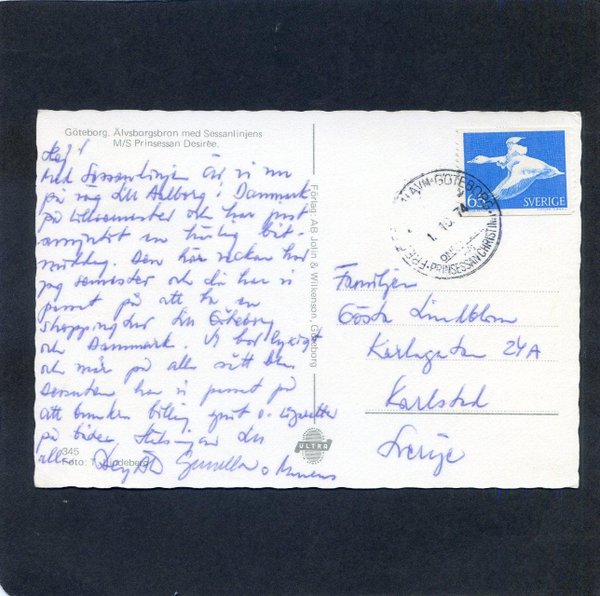 Göteborg. Älvsborgsbron med Sessanlinjens
M/S Prinsessan Desirée.
Hej!
Med Sessanlinjen är vi nu
på väg till Aalborg i Danmark
på och har just
en härlig bit
middag. Den här veckan har
jag semester och då har vi
passat på att ta en
shoppingtur till Göteborg
och Danmark. Vi bor lyxigt
och mår på alla sätt bra.
Dessutom har vi passat på
att billig sprit o. cigaretter
på båten. Hälsningar till
alla Gunilla o
345
Foto:
Förlag: AB John & Wilkenson, Göteborg
ULTRA
65
SVERIGE
HAVN-GÖTEBORG
1. 10. 74
PRINSESSAN CHRISTINA
Familjen
Gösta Lindblom
Karlagatan 24A
Karlstad
Sverige